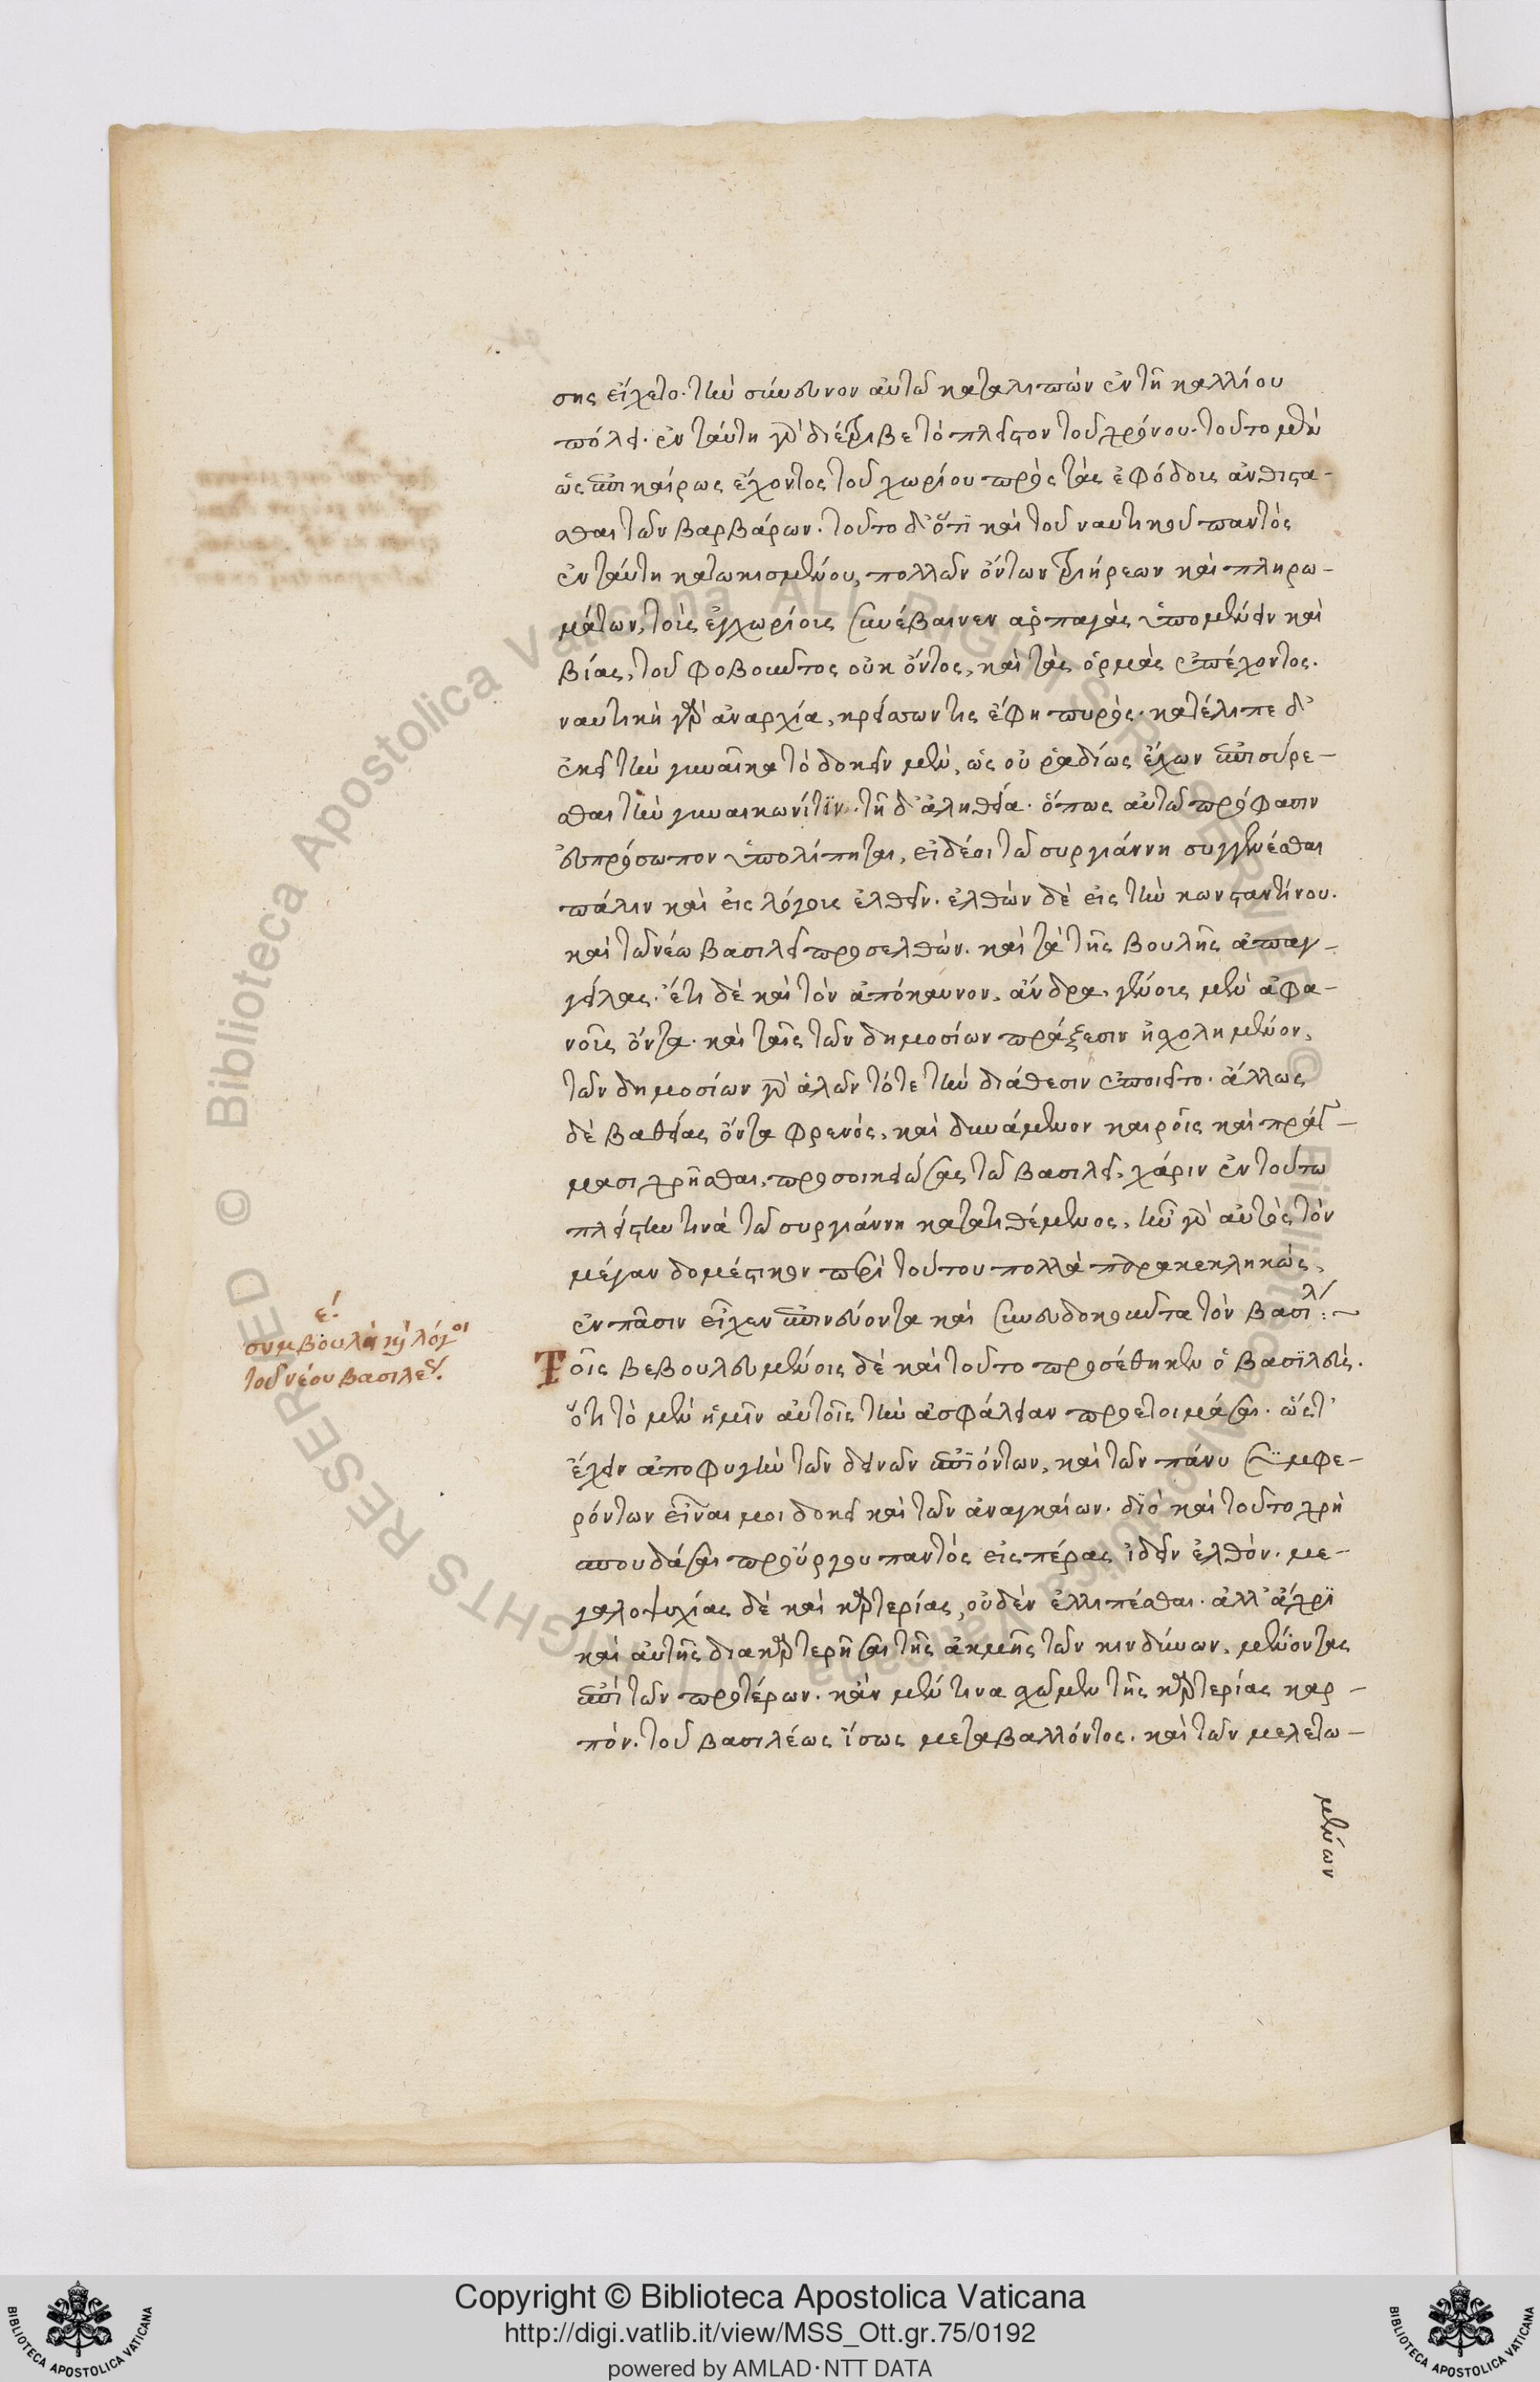 σης εἴχετο. τὴν σύνευνον αὐτῶ καταλιπὼν ἐν τῆ καλλίου
πόλει. ἐν ταύτη γὰρ διέτριβε τὸ πλεῖστον τοῦ χρόνου. τοῦτο μὲν
ὡς ἐπικαίρως ἔχοντος τοῦ χωρίου πρὸς τὰς ἐφόδους ἀνθίστα-
σθαι τῶν βαρβάρων. τοῦτο δ' ὅτι καὶ τοῦ ναυτικοῦ παντὸς
ἐν ταύτη κατωκισμένου, πολλῶν ὄντων τριήρεων καὶ πληρω-
μάτων, τοῖς ἐγχωρίοις συνέβαινεν ἁρπαγὰς ὑπομένειν καὶ
βίας, τοῦ φοβοῦντος οὐκ ὄντος, καὶ τὰς ὁρμὰς ἐπέχοντος.
ναυτικὴ γὰρ ἀναρχία, κρείσσων τις ἔφη πυρός. κατέλιπε δ'
ἐκεῖ τὴν γυναῖκα τὸ δοκεῖν μὲν, ὡς οὐ ῥαδίως ἔχων ἐπισύρε-
σθαι τὴν γυναικωνίτιν. τῆ δ' ἀληθεία. ὅπως αὐτῶ πρόφασιν
εὐπρόσωπον ὑπολίπηται, εἰ δέοι τῶ συργιάννη συγγενέσθαι
πάλιν καὶ εἰς λόγους ἐλθεῖν. ἐλθὼν δὲ εἰς τὴν κωνσταντίνου.
καὶ τῶ νέω βασιλεῖ προσελθὼν. καὶ τὰ τῆς βουλῆς ἀπαγ-
γείλας. ἔτι δὲ καὶ τὸν ἀπόκαυκον, ἄνδρα, γένους μὲν ἀφα-
νοῦς ὄντα. καὶ ταῖς τῶν δημοσίων πράξεσιν ἠσχολημένον,
τῶν δημοσίων γὰρ ἁλῶν τότε τὴν διάθεσιν ἐποιεῖτο. ἄλλως
δὲ βαθείας ὄντα φρενὸς, καὶ δυνάμενον καιροῖς καὶ πράγ-
μασι χρῆσθαι, προσοικειώσας τῶ βασιλεῖ, χάριν ἐν τούτω
πλείστην τινὰ τῶ συργιάννη κατατιθέμενος, ἦν γὰρ αὐτὸς τὸν
μέγαν δομέστικον περὶ τούτου πολλὰ παρακεκληκὼς,
ἐν πᾶσιν εἶχεν ἐπινεύοντα καὶ συνευδοκοῦντα τὸν βασιλ:~
ε'.
συμβουλὰ καὶ λόγοι
τοῦ νέου βασιλέως.
Τοῖς βεβουλευμένοις δὲ καὶ τοῦτο προσέθηκεν ὁ βασιλεὺς.
ὅτι τὸ μὲν ἡμῖν αὐτοῖς τὴν ἀσφάλειαν προετοιμάσαι. ὥστ'
ἔχειν ἀποφυγὴν τῶν δεινῶν ἐπϊόντων, καὶ τῶν πάνυ συμφε-
ρόντων εἶναι μοι δοκεῖ καὶ τῶν ἀναγκαίων. διὸ καὶ τοῦτο χρὴ
σπουδάσαι προὔργου παντὸς εἰς πέρας ἰδεῖν ἐλθόν. με-
γαλοψυχίας δὲ καὶ καρτερίας, οὐδὲν ἐλλιπέσθαι. ἀλλ' ἄχρϊ
καὶ αὐτῆς διακαρτερῆσαι τῆς ἀκμῆς τῶν κινδύνων, μένοντας
ἐπὶ τῶν προτέρων. κἂν μέν τινα σχῶμεν τῆς καρτερίας καρ-
πὸν. τοῦ βασιλέως ἴσως μεταβαλλόντος. καὶ τῶν μελετω-
μένων
Copyright © Biblioteca Apostolica Vaticana
http://digi.vatlib.it/view/MSS_Ott.gr.75/0192
powered by AMLAD·NTT DATA
BIBLIOTECA APOSTOLICA VATICANA
BIBLIOTECA APOSTOLICA VATICANA